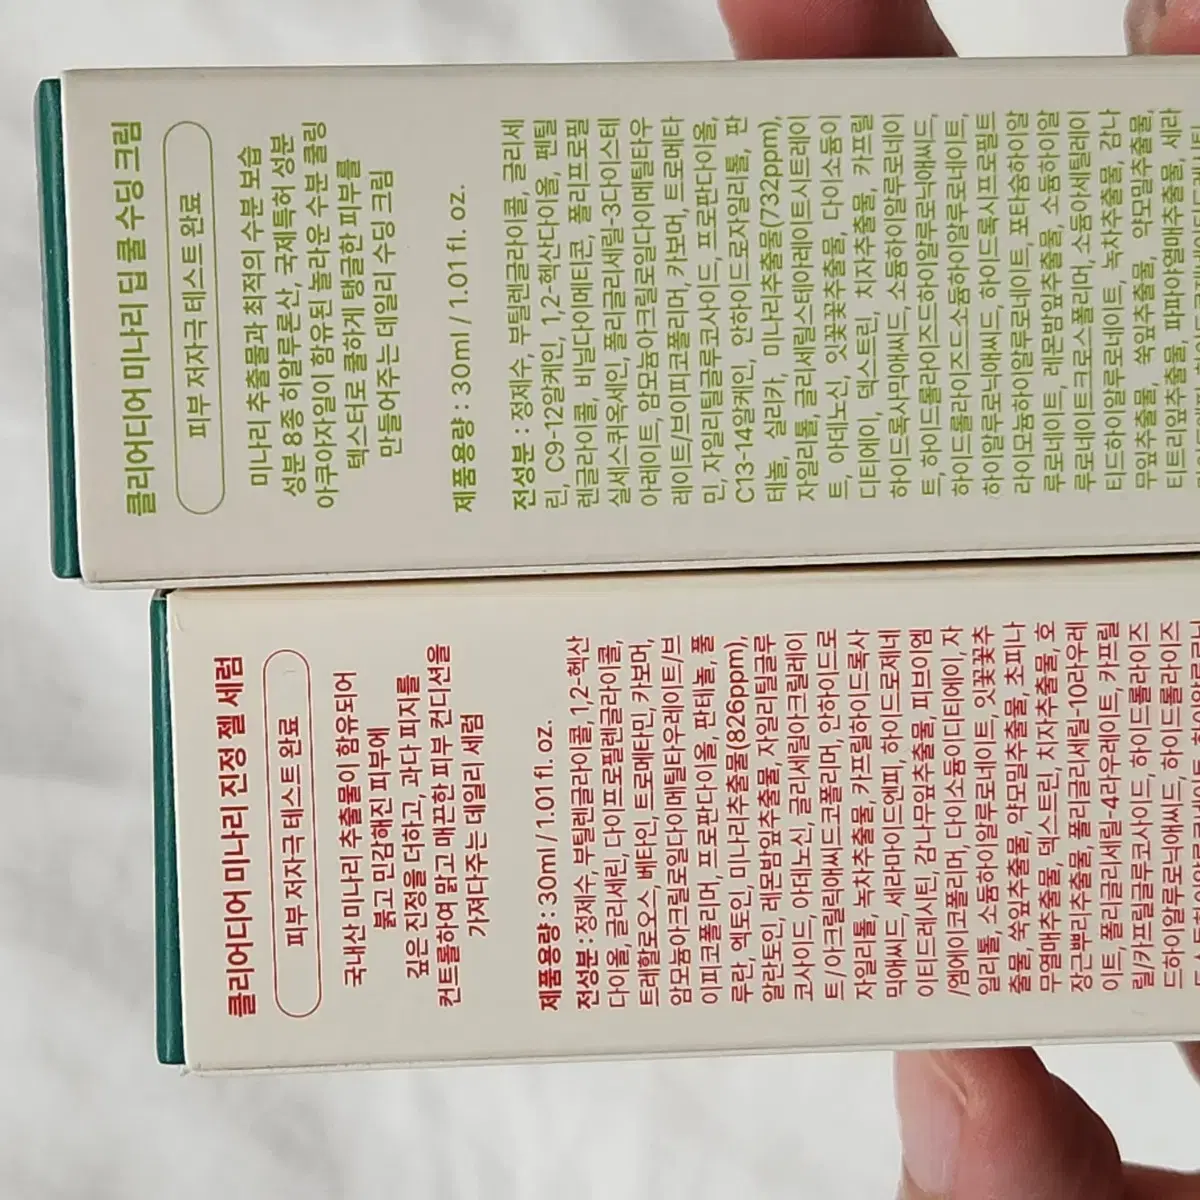 클리어디어 미나리 딥 쿨 수딩 크림
피부 저자극 테스트 완료
미나리 추출물과 최적의 수분 보습
성분 8종 히알루론산, 국제특허 성분
아쿠아자일이 함유된 놀라운 수분 쿨링
텍스터로 쿨하게 탱글한 피부를
만들어주는 데일리 수딩 크림
제품용량 : 30ml / 1.01 fl. oz.
전성분 : 정제수, 부틸렌글라이콜, 글리세
린, C9-12알케인, 1,2-헥산다이올, 펜틸
렌글라이콜, 비닐다이메티콘, 폴리프로필
실세스퀴옥세인, 폴리글리세릴-3다이스테
아레이트, 암모늄아크릴로일다이메틸타우
레이트/브이피코폴리머, 카보머, 트로메타
민, 자일리틸글루코사이드, 프로판다이올,
C13-14알케인, 안하이드로자일리톨, 판
테놀, 실리카, 미나리추출물(732ppm),
자일리톨, 글리세릴스테아레이트시트레이
트, 아데노신, 잇꽃꽃추출물, 다이소듐이
디티에이, 덱스트린, 치자추출물, 카프릴
하이드록사믹애씨드, 소듐하이알루로네이
트, 하이드롤라이즈드하이알루로닉애씨드,
하이드롤라이즈드소듐하이알루로네이트,
하이알루로닉애씨드, 하이드록시프로필트
라이모늄하이알루로네이트, 포타슘하이알
루로네이트, 레몬밤잎추출물, 소듐하이알
루로네이트크로스폴리머, 소듐아세틸레이
티드하이알루로네이트, 녹차추출물, 감나
무잎추출물, 쑥잎추출물, 약모밀추출물,
티트리잎추출물, 파파야열매추출물, 세라
클리어디어 미나리 진정 젤 세럼
피부 저자극 테스트 완료
국내산 미나리 추출물이 함유되어
붉고 민감해진 피부에
깊은 진정을 더하고, 과다 피지를
컨트롤하여 맑고 매끈한 피부 컨디션을
가져다주는 데일리 세럼
제품용량 : 30ml / 1.01 fl. oz.
전성분 : 정제수, 부틸렌글라이콜, 1,2-헥산
다이올, 글리세린, 다이프로필렌글라이콜,
트레할로오스, 베타인, 트로메타민, 카보머,
암모늄아크릴로일다이메틸타우레이트/브
이피코폴리머, 프로판다이올, 판테놀, 풀
루란, 엑토인, 미나리추출물(826ppm),
알란토인, 레몬밤잎추출물, 자일리틸글루
코사이드, 아데노신, 글리세릴아크릴레이
트/아크릴릭애씨드코폴리머, 안하이드로
자일리톨, 녹차추출물, 카프릴하이드록사
믹애씨드, 세라마이드엔피, 하이드로제네
이티드레시틴, 감나무잎추출물, 피브이엠
/엠에이코폴리머, 다이소듐이디티에이, 자
일리톨, 소듐하이알루로네이트, 잇꽃꽃추
출물, 쑥잎추출물, 약모밀추출물, 초피나
무열매추출물, 덱스트린, 치자추출물, 호
장근뿌리추출물, 폴리글리세릴-10라우레
이트, 폴리글리세릴-4라우레이트, 카프릴
릴/카프릴글루코사이드, 하이드롤라이즈
드하이알루로닉애씨드, 하이드롤라이즈